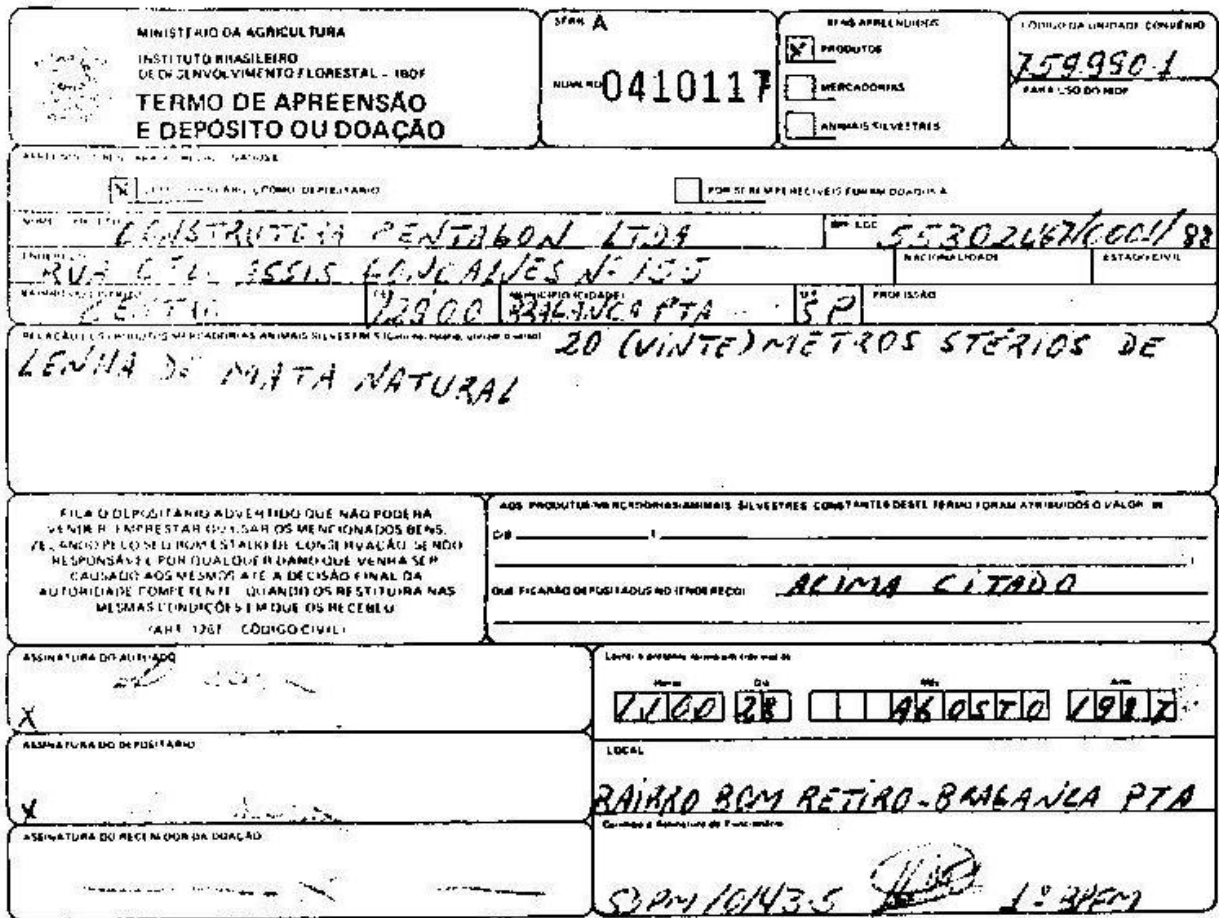 MINISTÉRIO DA AGRICULTURA
INSTITUTO BRASILEIRO
DE DESENVOLVIMENTO FLORESTAL - IBDF
TERMO DE APREENSÃO
E DEPÓSITO OU DOAÇÃO
SÉRIE A
NÚMERO 0410117
BENS APREENDIDOS
X PRODUTOS
MERCADORIAS
ANIMAIS SILVESTRES
CÓDIGO DA UNIDADE CONVÊNIO
759990-1
PARA USO DO IBDF
X COMO DEPOSITÁRIO
POR SEREM PERECÍVEIS FORAM DOADOS A
NOME
CONSTRUTORA PENTAGON LTDA
55302467/0001/88
ENDEREÇO
RUA CEL. ASSIS GONCALVES Nº 155
NACIONALIDADE
ESTADO CIVIL
CENTRO
CEP
12900
MUNICÍPIO (CIDADE)
BRAGANCA PTA
UF
SP
PROFISSÃO
RELAÇÃO DOS PRODUTOS MERCADORIAS ANIMAIS SILVESTRES
20 (VINTE) METROS STÉRIOS DE
LENHA DE MATA NATURAL
FICA O DEPOSITÁRIO ADVERTIDO QUE NÃO PODERÁ
VENDER, EMPRESTAR OU USAR OS MENCIONADOS BENS,
ZELANDO PELO SEU BOM ESTADO DE CONSERVAÇÃO, SENDO
RESPONSÁVEL POR QUALQUER DANO QUE VENHA SER
CAUSADO AOS MESMOS ATÉ A DECISÃO FINAL DA
AUTORIDADE COMPETENTE, QUANDO OS RESTITUIRÁ NAS
MESMAS CONDIÇÕES EM QUE OS RECEBEU
(ART. 1267 CÓDIGO CIVIL)
AOS PRODUTOS/MERCADORIAS/ANIMAIS SILVESTRES CONSTANTES DESTE TERMO FORAM ATRIBUÍDOS O VALOR DE
QUE FICARÃO DEPOSITADOS NO (ENDEREÇO) ACIMA CITADO
ASSINATURA DO AUTUADO
X
ASSINATURA DO DEPOSITÁRIO
X
ASSINATURA DO RECEBEDOR DA DOAÇÃO
Horas Dia Mês Ano
1100 28 AGOSTO 1987
LOCAL
BAIRRO BOM RETIRO - BRAGANCA PTA
Carimbo e Assinatura do Funcionário
SDPM 10143-5 1º BPFM